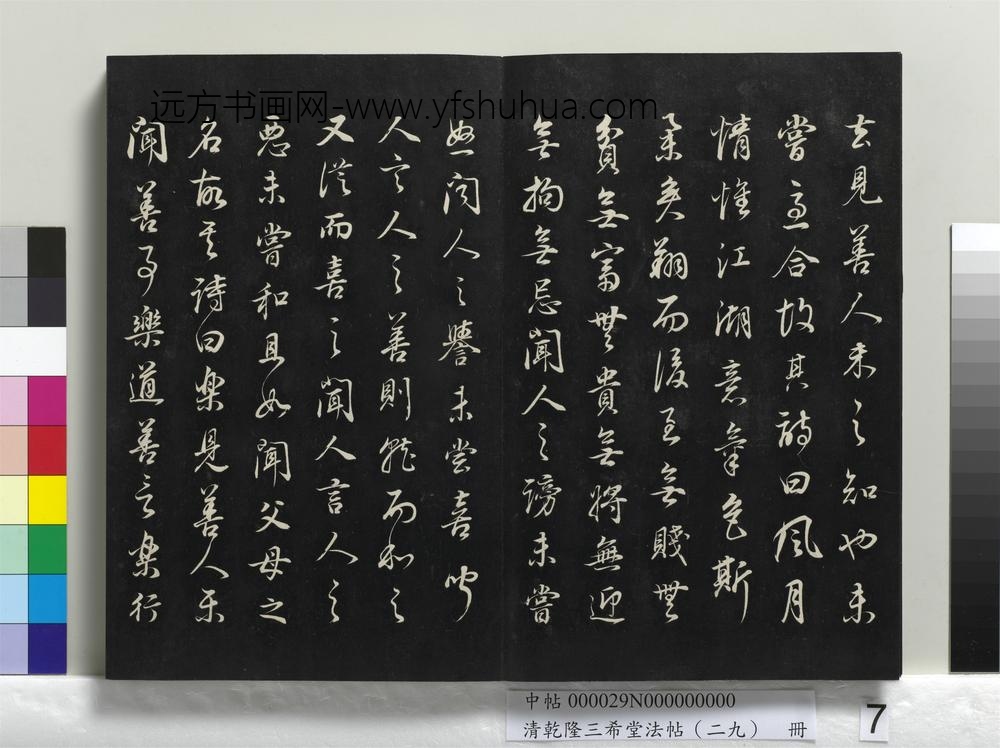 远方书画网-www.yfshuhua.com
去見善人未之知也未
嘗急合故其詩曰風月
情惟江湖意氣色斯
舉矣翔而後至無賤無
貧無富無貴無將無迎
無拘無忌聞人之謗未嘗
怒聞人之譽未嘗喜聞
人言人之善則就而和之
又從而喜之聞人言人之
惡未嘗和且如聞父母之
名故其詩曰樂見善人樂
聞善事樂道善言樂行
中帖 000029N000000000
清乾隆三希堂法帖(二九) 冊
7